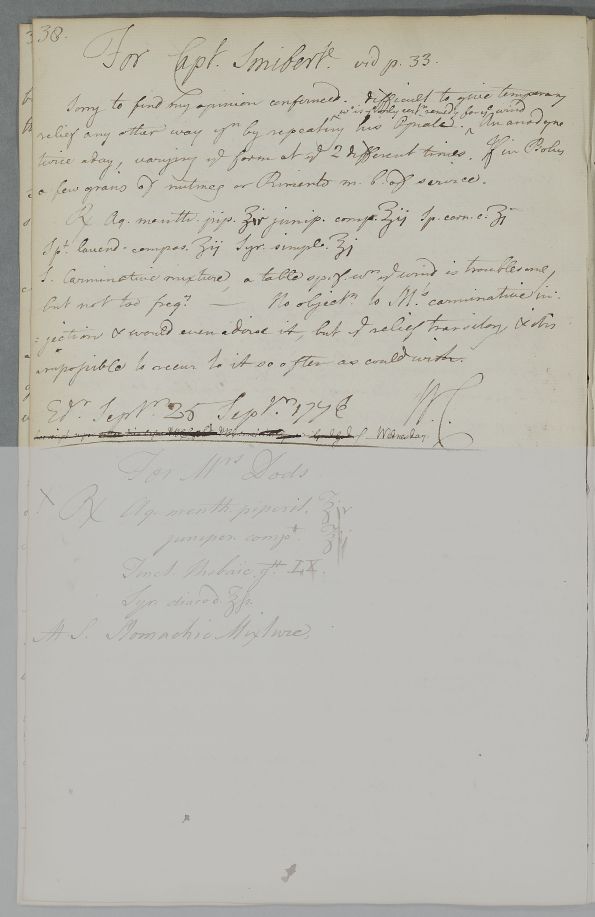 38.
For Capt. Smiberte. vid p. 33.
Sorry to find my opinion confirmed. difficult to give temporary
wc. is ye only cert. remedy for ye wind
relief any other way yn by repeating his Opiate. ^ An anodyne
twice a day, varying yd form at yd 2 different times. If in Bolus
a few grains of nutmeg or Pimento m. b. of service.
Rx Aq. menth. pip. ℥iv junip. comp. ℥ij Sp. corn. c. ʒj
Spt. lavend. compos. ʒij Syr. simpl. ℥j
S. Carminative mixture, a table sp.f. wn yd wind is troublesome,
but not too freqt. — No objectn to Mr's carminative in:
=jection & would even advise it, but yd relief transitory, & tis
impossible to occur to it so often as could wish.
Edr. 25 Septbr. 1778 WC
Wednesday.
For Mrs Dods
X Rx Aq. menth. piperit. ℥iv
juniper. compt. ℥ij
Tinct. Thebaic. gtt LX.
Syr. diacod. ℥js
M S. Stomachic Mixture.